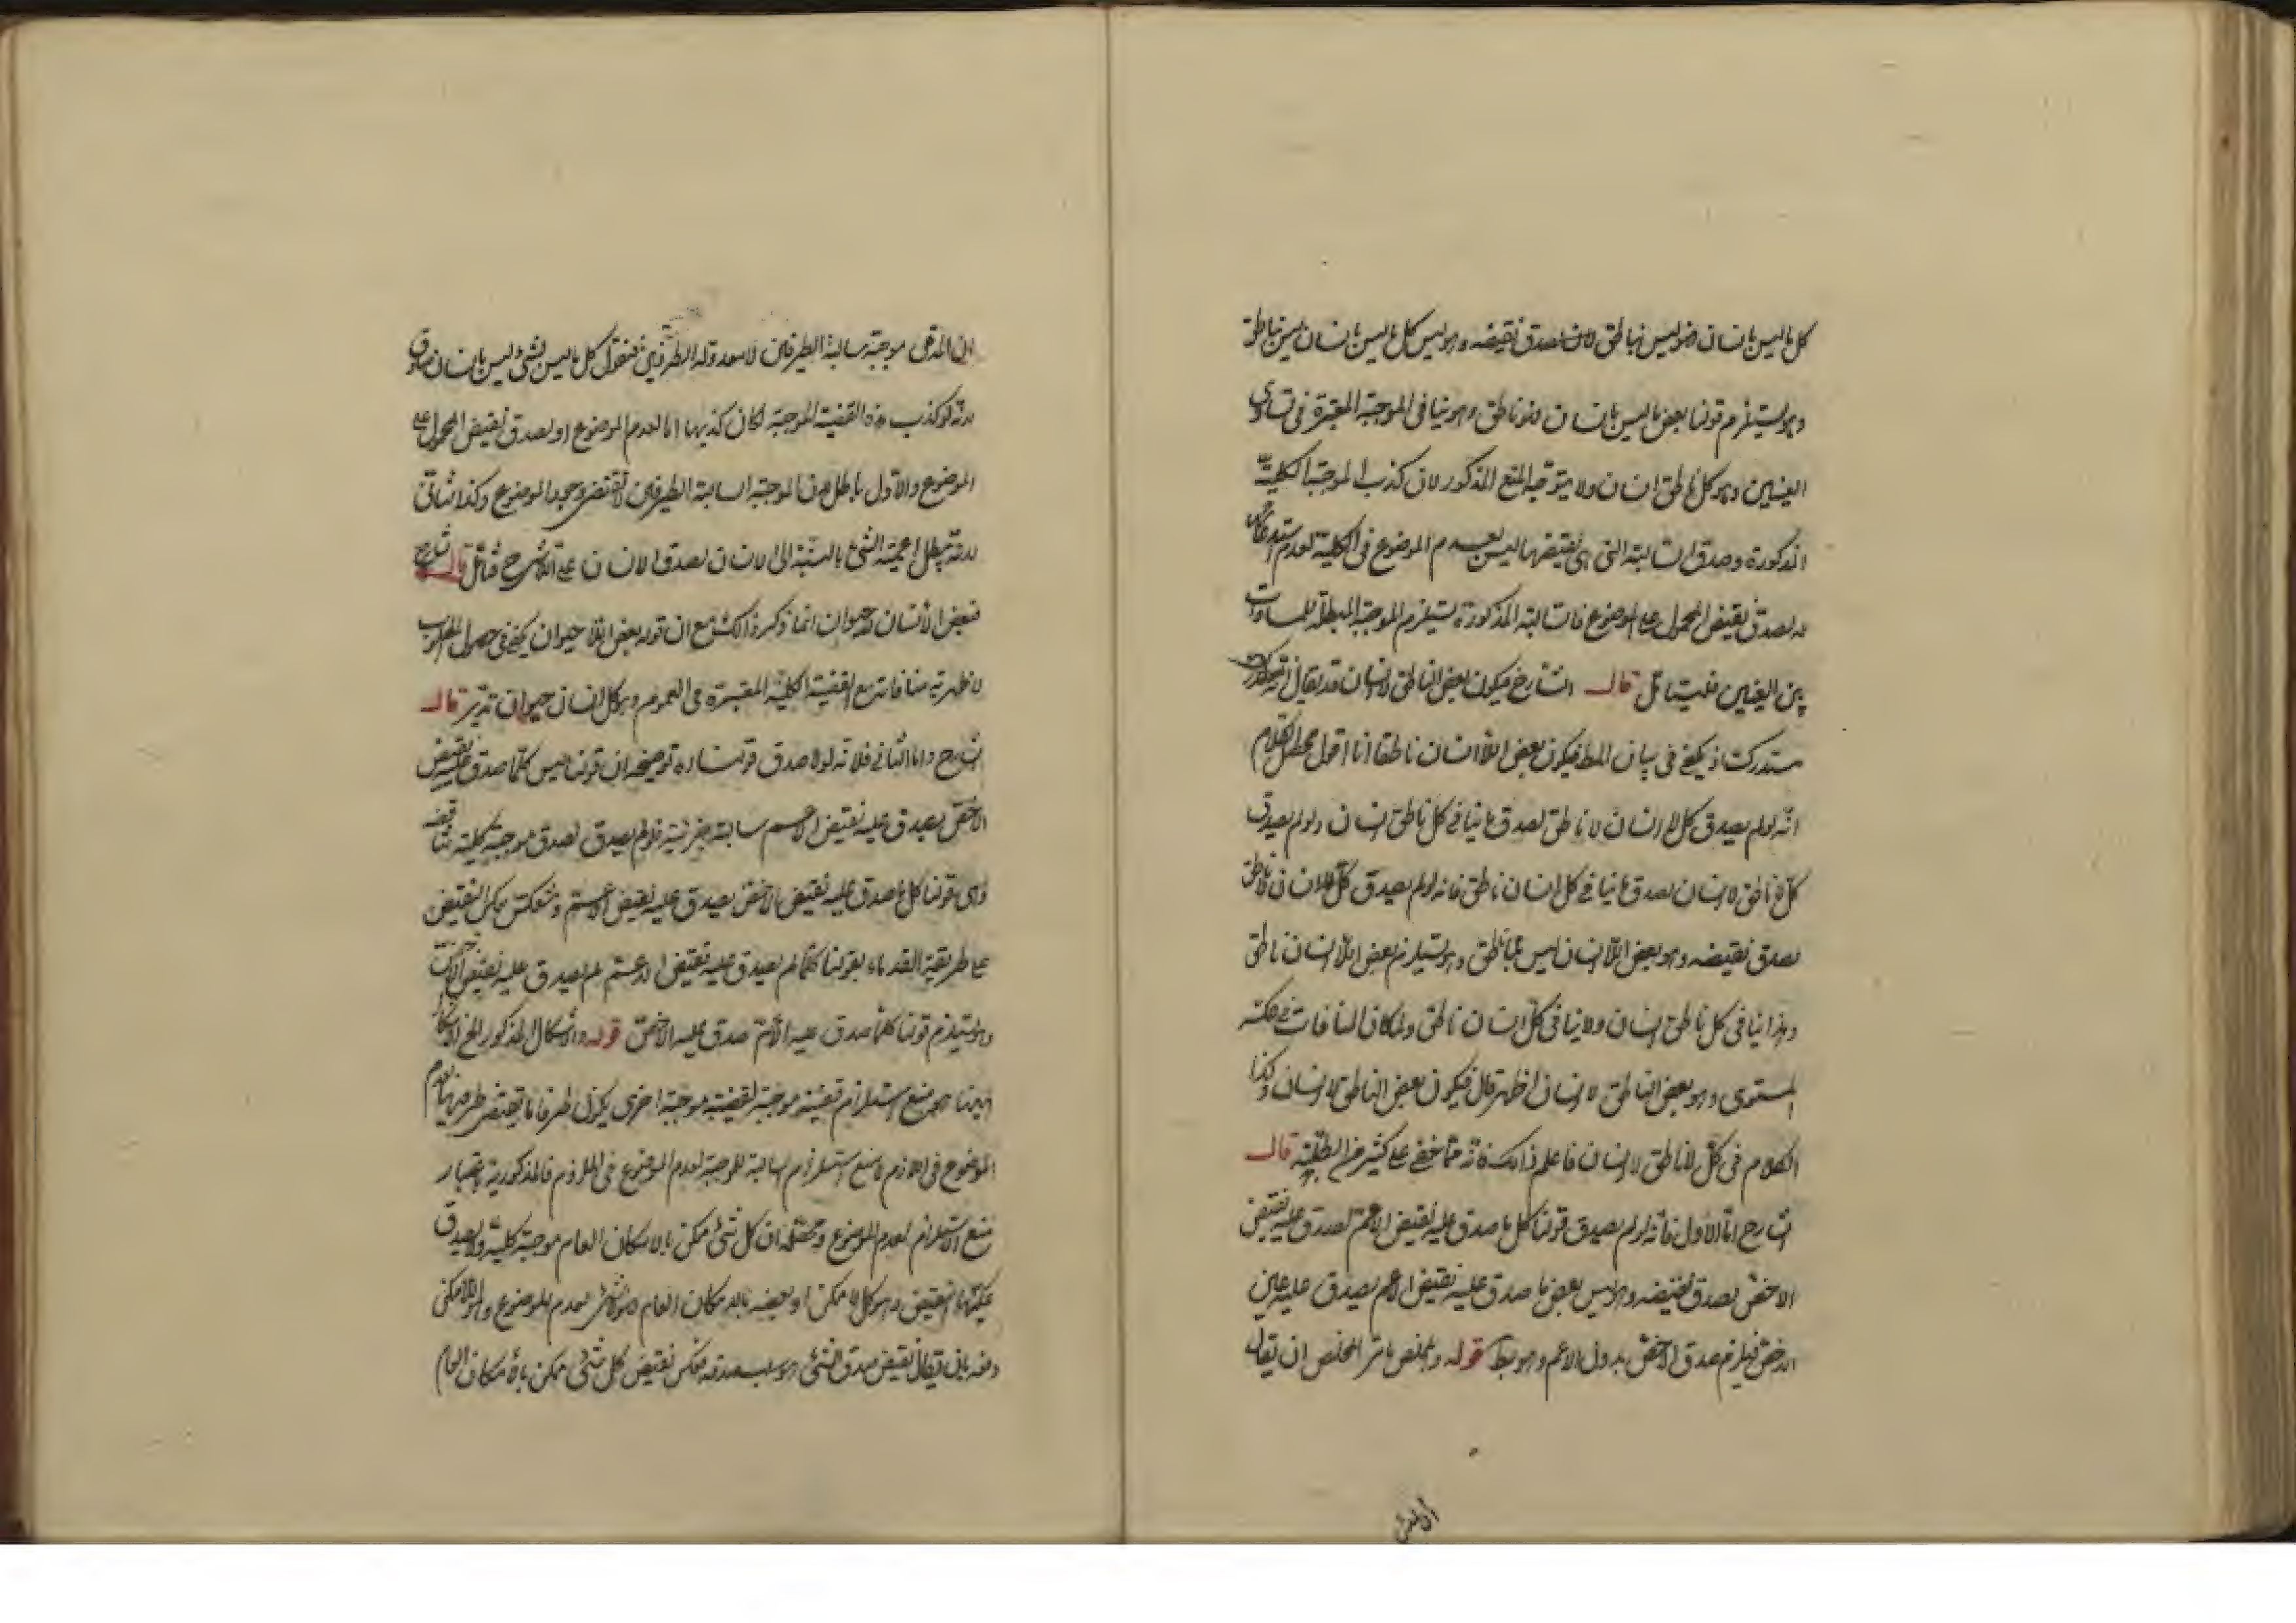 كل ما ليس بانسان فهو ليس بناطق لانه لصدق نقيضه وهو ليس كل ما ليس بانسان ليس بناطق
وهو يستلزم قولنا بعض ما ليس بانسان فهو ناطق وهو ينافى الموجبة المعتبرة فى تساوى
العينين وهو كل ناطق انسان ولا يتوجه المنع المذكور لان كذب الموجبة الكلية
المذكورة وصدق السالبة التى هى نقيضها ليس بعدم الموضوع فى الكلية لعدم
بل لصدق نقيض المحمول على الموضوع فالسالبة المذكورة يستلزم الموجبة المبطلة للمساواة
بين العينين فليتأمل قال الشارح فيكون بعض الناطق لا انسان قد يقال
مستدرك اذ يكفى فى بيان المط فيكون بعض اللا انسان ناطقا انا اقول محصل الكلام
انه لو لم يصدق كل لا انسان لا ناطق لصدق ما ينافى كل ناطق انسان ولو لم يصدق
كل لا ناطق لا انسان لصدق ما ينافى كل انسان ناطق فانه لو لم يصدق كل لا انسان لا ناطق
لصدق نقيضه وهو بعض اللا انسان ليس بلا ناطق وهو يستلزم بعض اللا انسان ناطق
وهذا ينافى كل ناطق انسان ولا ينافى كل انسان ناطق ولما كان المنافات فى عكسه
المستوى وهو بعض الناطق لا انسان اظهر قال فيكون بعض الناطق لا انسان وكذا
الكلام فى كل لا ناطق لا انسان فاعلم ذلك فانه مما خفى على كثير من الطلبة قال
الشارح اما الاول فانه لو لم يصدق قولنا كل ما صدق عليه نقيض الاعم لصدق عليه نقيض
الاخص لصدق نقيضه وهو ليس بعض ما صدق عليه نقيض الاعم يصدق عليه عين
الاخص فيلزم صدق الاخص بدون الاعم وهو بط قوله والمخلص ما مر المخلص ان يقال
ان المدعى موجبة سالبة الطرفين لا معدولة الطرفين فنقول كل ما ليس بشئ ليس بانسان صادق
لانه لو كذب هذه القضية الموجبة لكان كذبها اما لعدم الموضوع او لصدق نقيض المحمول على
الموضوع والاول باطل لان الموجبة السالبة الطرفين لا تقتضى وجود الموضوع وكذا الثانى
لانه يبطل اعمية الشئ بالنسبة الى الانسان لصدق الانسان على اللاشئ فتأمل قال الشارح
فبعض الانسان لا حيوان انما ذكره للكشف مع ان قوله بعض اللا حيوان يكفى فى حصول المطلوب
لاظهرية منافاته مع القضية الكلية المعتبرة فى العموم وهو كل انسان حيوان تدبر قال
الشارح واما الثانى فلانه لولا صدق قولنا اه توضيحه ان قولنا ليس كلما صدق عليه نقيض
الاخص يصدق عليه نقيض الاعم سالبة جزئية فلو لم يصدق لصدق موجبة كلية تناقضه
وهى قولنا كل ما صدق عليه نقيض الاخص يصدق عليه نقيض الاعم وينعكس بعكس النقيض
على طريقة القدماء بقولنا كلما لم يصدق عليه نقيض الاعم لم يصدق عليه نقيض الاخص
وهو يستلزم قولنا كلما صدق عليه الاعم صدق عليه الاخص قوله والاشكال المذكور الخ الاشكال
ههنا منع استلزام قضية موجبة لقضية موجبة اخرى يكون طرفا نقيض طرفيها لعدم
الموضوع فى اللازم لا منع استلزام السالبة للموجبة لعدم الموضوع فى الملازم فالمذكورية باعتبار
منع الاستلزام لعدم الموضوع ومحصله ان كل شئ ممكن بالامكان العام موجبة كلية ولا يصدق
عكسها النقيض وهو كل لا ممكن او بعضه بالامكان العام فهو لاشئ لعدم الموضوع وهو اللاممكن
ودفعه بان يقال نقيض صدق الشئ هو سلب صدقه فعكس نقيض كل شئ ممكن بالامكان العام